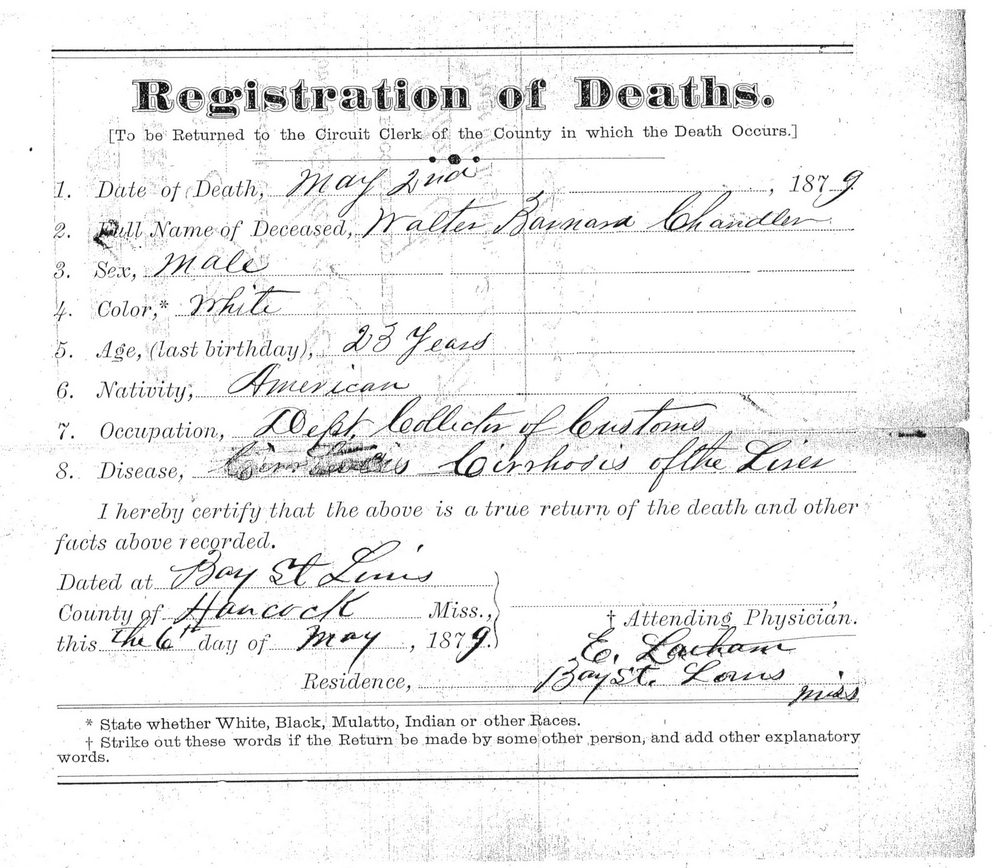 Registration of Deaths.
[To be Returned to the Circuit Clerk of the County in which the Death Occurs.]
1. Date of Death, May 2nd, 1879.
2. Full Name of Deceased, Walter Barnard Chandler
3. Sex, Male
4. Color,* White
5. Age, (last birthday), 23 Years
6. Nativity, American
7. Occupation, Dept. Collector of Customs
8. Disease, Cirrhosis of the Liver
I hereby certify that the above is a true return of the death and other
facts above recorded.
Dated at Bay St Louis
County of Hancock Miss.,
† Attending Physician.
this the 6th day of May, 1879.
E.
Residence, Bay St. Louis
Miss
* State whether White, Black, Mulatto, Indian or other Races.
† Strike out these words if the Return be made by some other person, and add other explanatory
words.